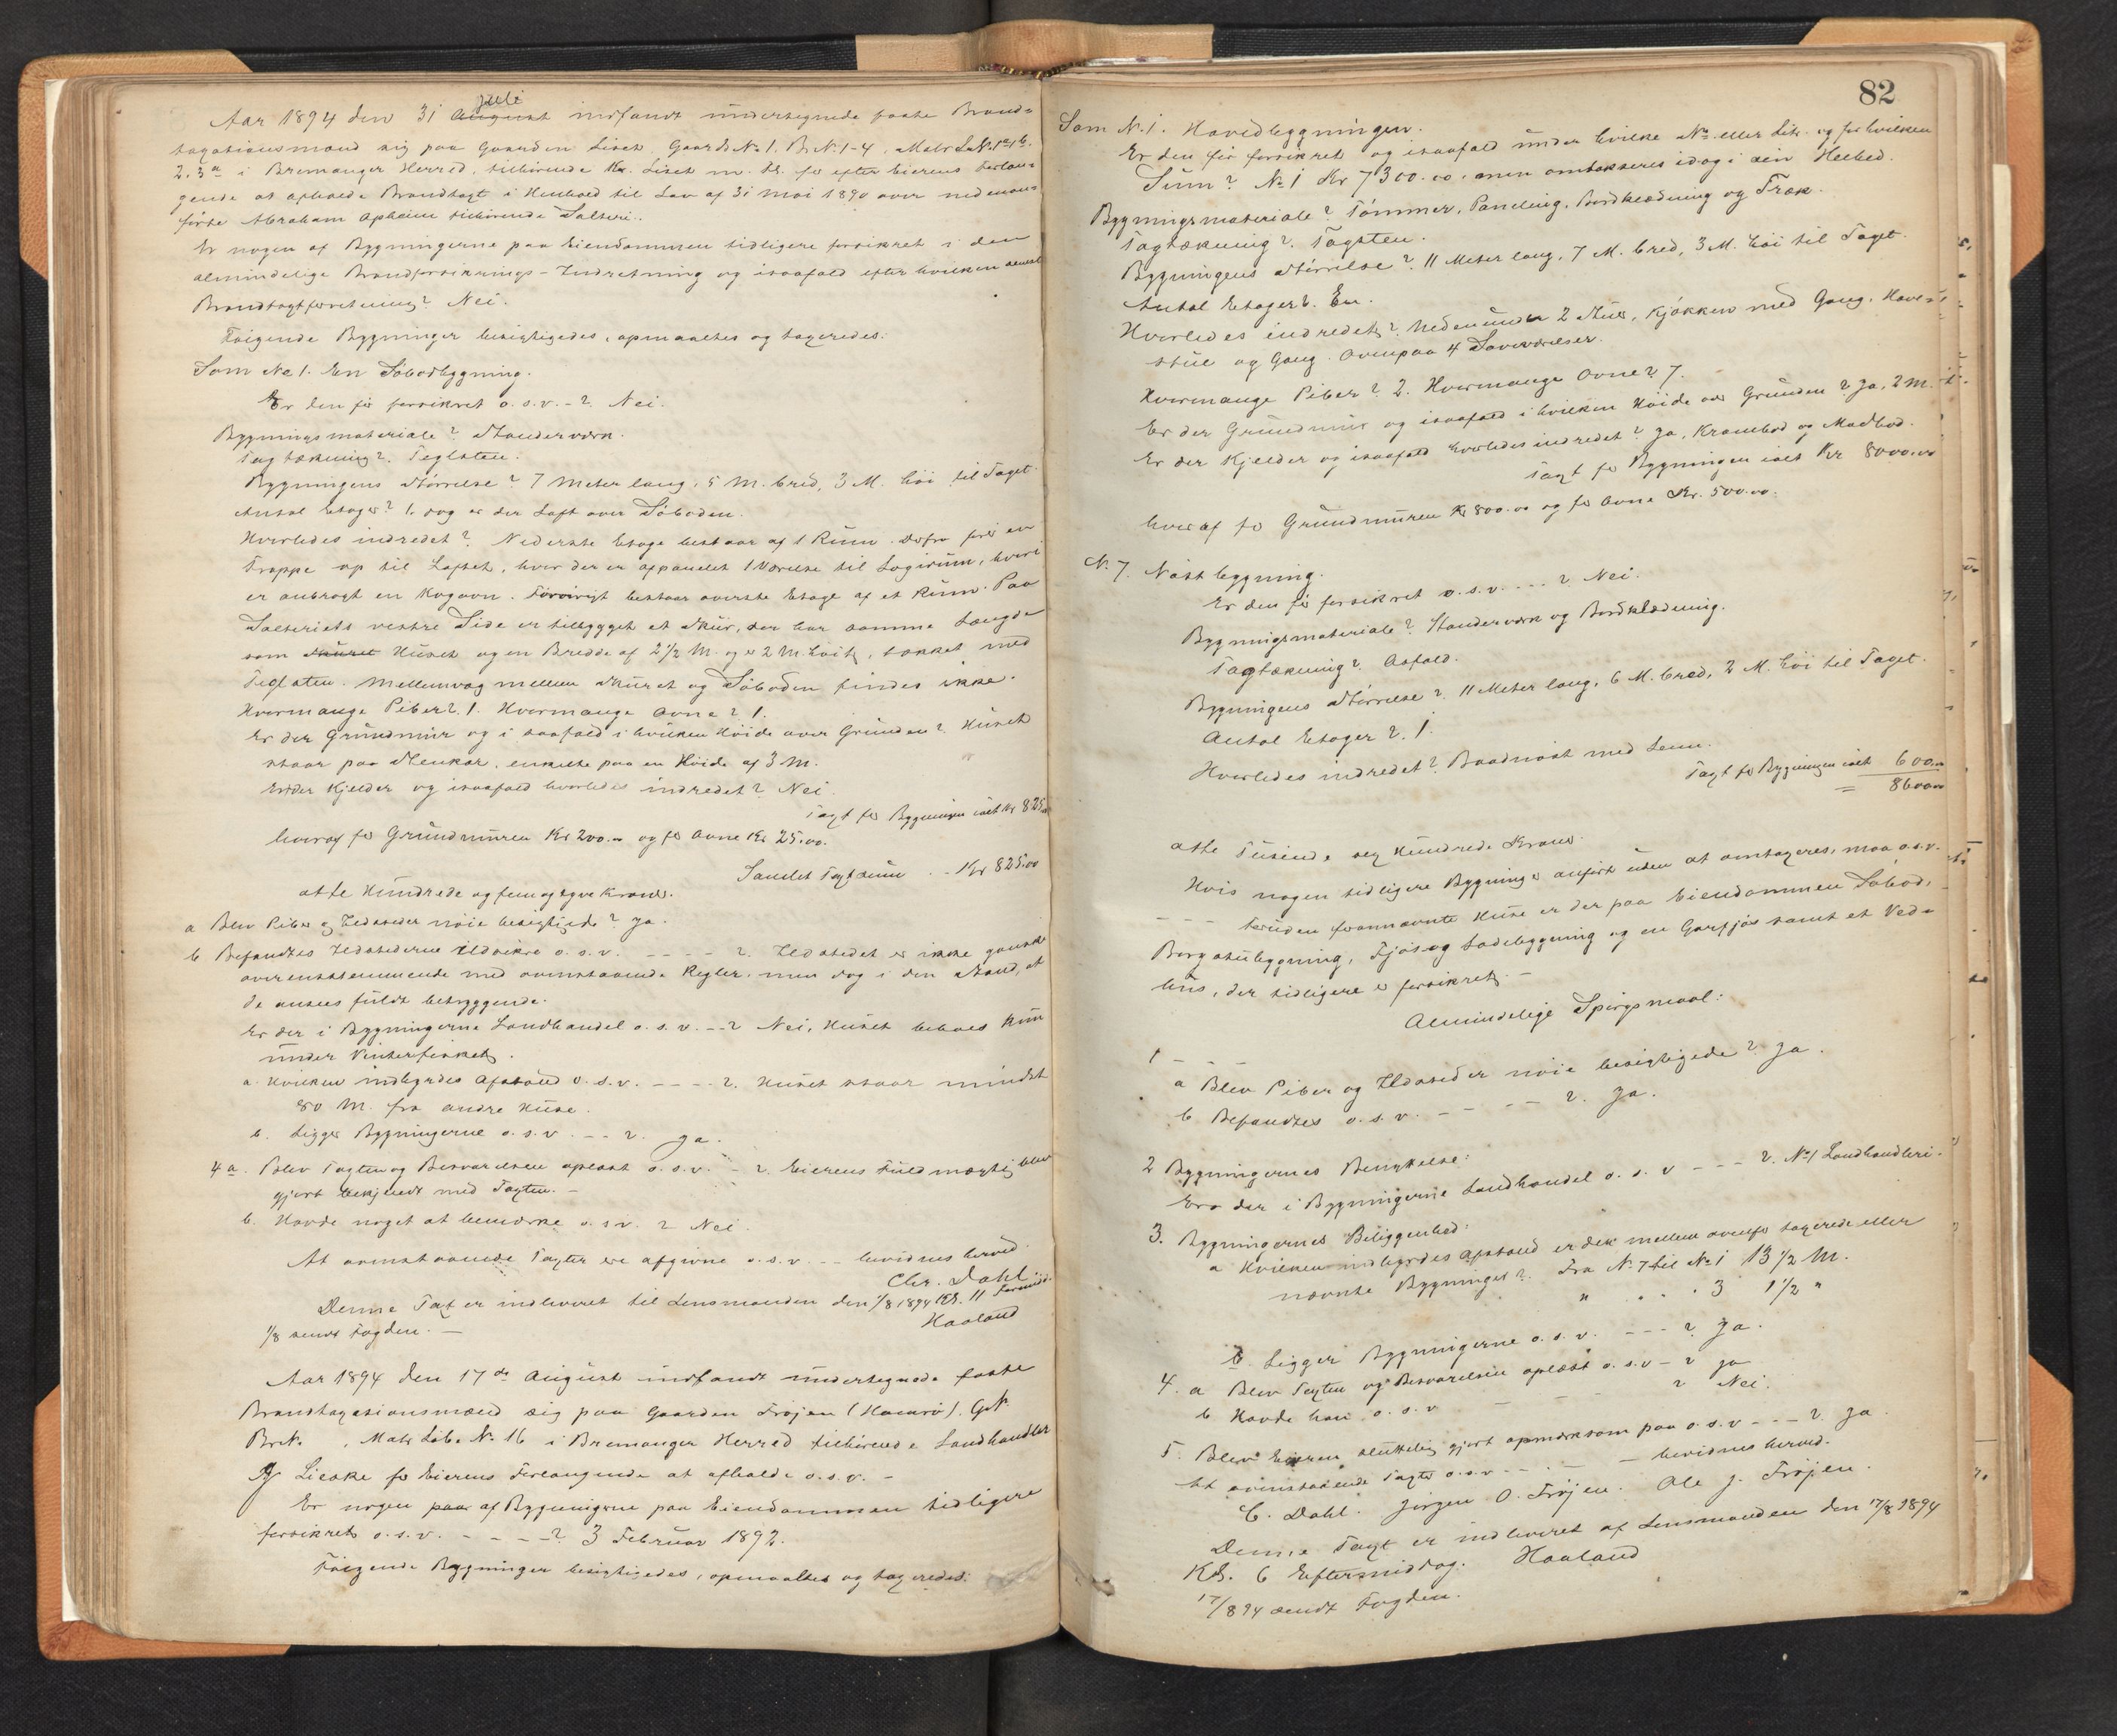 Aar 1894 den 31 august juli indfandt undertegnede faste Brand=
taxationsmænd sig paa Gaarden Liset Gaards No 1. B.N. 1-4, Matr
2. 3a i Bremanger Herred, tilhörende Liset for efter Eierens Forlan=
gende at afholde Brandtaxt i Henhold til Lov af 31 Mai 1890 over nedenan=
förte Abraham tilhörende Salteri.
Er nogen af Bygningerne paa Eiendommen tidligere forsikret i den
almindelige Brandforsikrings-Indretning og isaafald efter hvilken
Brandtaxtforretning? Nei.
Fölgende Bygninger besigtigedes, opmaaltes og taxeredes:
Som No 1. En Söbodbygning.
Er den för forsikret o.s.v. - ? Nei.
Bygningsmateriale? Standerværk.
Tagtækning? Teglsten.
Bygningens Störrelse? 7 Meter lang, 5 M. bred, 3 M. höi til Taget.
Antal Etager? 1. dog er der Loft over Söboden.
Hvorledes indredet? Nederste Etage bestaar af 1 Rum. Derfra förer en
Trappe op til Loftet, hvor der er afpanelet 1 Værelse til Logirum, hvori
er anbragt en Kogovn. Forövrigt bestaar överste Etage af et Rum. Paa
Salteriets vestre Side er tilbygget et Skur, der har samme Længde
som Skuret Huset og en Bredde af 2 1/2 M. og er 2 M. höit, tækket med
Teglsten. Mellemvæg mellem Skuret og Söboden findes ikke.
Hvormange Piber? 1. Hvormange Ovne? 1.
Er der Grundmur og i saafald i hvilken Höide over Grunden? Huset
staar paa Stenkar, enkelte paa en Höide af 3 M.
Er der Kjelder og isaafald hvorledes indredet? Nei.
Taxt for Bygningen ialt Kr 825.
hvoraf for Grundmuren Kr 200.00 og for Ovne Kr 25.00.
Samlet Taxtsum - Kr 825.00
otte Hundrede og fem og tyve Kroner.
a Blev Piber og Ildsteder nöie besigtigede? Ja.
b Befandtes Ildstederne ildsikre o.s.v. - - - - ? Ildstedet er ikke ganske
overensstemmende med ovenstaaende Regler, men dog i den Stand, at
de ansees fuldt betryggende.
Er der i Bygningerne Landhandel o.s.v. - - ? Nei, Huset beboes kun
under Vinterfisket.
a. Hvilken indbyrdes Afstand o.s.v. - - - - ? Huset staar mindst
80 M. fra andre Huse.
b. Ligger Bygningerne o.s.v. - - ? Ja.
4 a. Blev Taxten og Besvarelsen oplæst o.s.v. - ? Eierens Fuldmægtig blev
gjort bekjendt med Taxten. -
b. Havde noget at bemærke o.s.v. ? Nei.
At ovenstaaende Taxter ere afgivne o.s.v. - - bevidnes herved
Chr. Dahl.
Denne Taxt er indleveret til Lensmanden den 1/8 1894 Kl. 11 Formidd.
1/8 sendt Fogden. - Haaland
Aar 1894 den 17de August indfandt undertegnede faste
Brandtaxationsmænd sig paa Gaarden Fröjen (Havnö). G.N.
Br.N. , Matr Löb. No 16 i Bremanger Herred tilhörende Landhandler
Lieske for Eierens Forlangende at afholde o.s.v. -
Er nogen paa af Bygningerne paa Eiendommen tidligere
forsikret o.s.v. - - - - - ? 3 Februar 1892.
Fölgende Bygninger besigtigedes, opmaaltes og taxeredes:
82
Som No. 1. Hovedbygningen.
Er den för forsikret og isaafald under hvilke No eller Litr. og for hvilken
Sum? No 1 Kr 7300.00, men omtakseres idag i sin Helhed.
Bygningsmateriale? Tömmer, Paneling, Bordklædning og Træk.
Tagtækning? Tagsten.
Bygningens Störrelse? 11 Meter lang, 7 M. bred, 3 M. höi til Taget.
Antal Etager? En.
Hvorledes indredet? Nedenunder 2 Stuer, Kjökken med Gang. Have=
stue og Gang. Ovenpaa 4 Soveværelser.
Hvormange Piber? 2. Hvormange Ovne? 7.
Er der Grundmur og isaafald i hvilken Höide over Grunden? Ja, 2 M.
Er der Kjelder og isaafald hvorledes indredet? Ja, Krambod og Madbod.
Taxt for Bygningen ialt Kr 8000.00
hvoraf for Grundmuren Kr 800.00 og for Ovne Kr. 500.00.
No. 7. Nöstbygning.
Er den för forsikret o.s.v. - - - ? Nei.
Bygningsmateriale? Standerværk og Bordklædning.
Tagtækning? Asfald.
Bygningens Störrelse? 11 Meter lang, 6 M. bred, 2 M. höi til Taget.
Antal Etager? 1.
Hvorledes indredet? Baadnöst med Lem.
Taxt for Bygningen ialt 600.00
= 8600.00
otte Tusinde sex Hundrede Kroner.
Hvis nogen tidligere Bygninger anfört uden at omtaxeres, maa o.s.v.
- - - Foruden förnævnte Huse er der paa Eiendommen Söbod,
Borgstubygning, Fjös og Ladebygning og en Garfjös samt et Ved=
hus, der tidligere er forsikret. -
Almindelige Spörgsmaal:
1
a Blev Piber og Ildsteder nöie besigtigede? Ja.
b Befandtes o.s.v. - - - - ? Ja.
2 Bygningernes Benyttelse:
Ero der i Bygningerne Landhandel o.s.v - - - ? No 1 Landhandleri.
3. Bygningernes Beliggenhed:
a Hvilken indbyrdes Afstand er der mellem ovenfor taxerede eller
nævnte Bygninger? Fra No. 7 til No 1 13 1/2 M.
" . . . 3 1 1/2 "
b. Ligger Bygningerne o.s.v. - - - ? Ja.
4. a Blev Taxten og Besvarelsen oplæst o.s.v - ? Ja
b Havde han o.s.v - - - ? Nei.
5. Blev Eieren sluttelig gjort opmærksom paa o.s.v - - - ? Ja.
At ovenstaaende Taxter o.s.v - - - - bevidnes herved.
C. Dahl. Jörgen O. Fröjen. Ole J. Fröjen.
Denne Taxt er indleveret af Lensmanden den 17/8 1894
Kl. 6 Eftermiddag. Haaland
17/8 94 sendt Fogden.